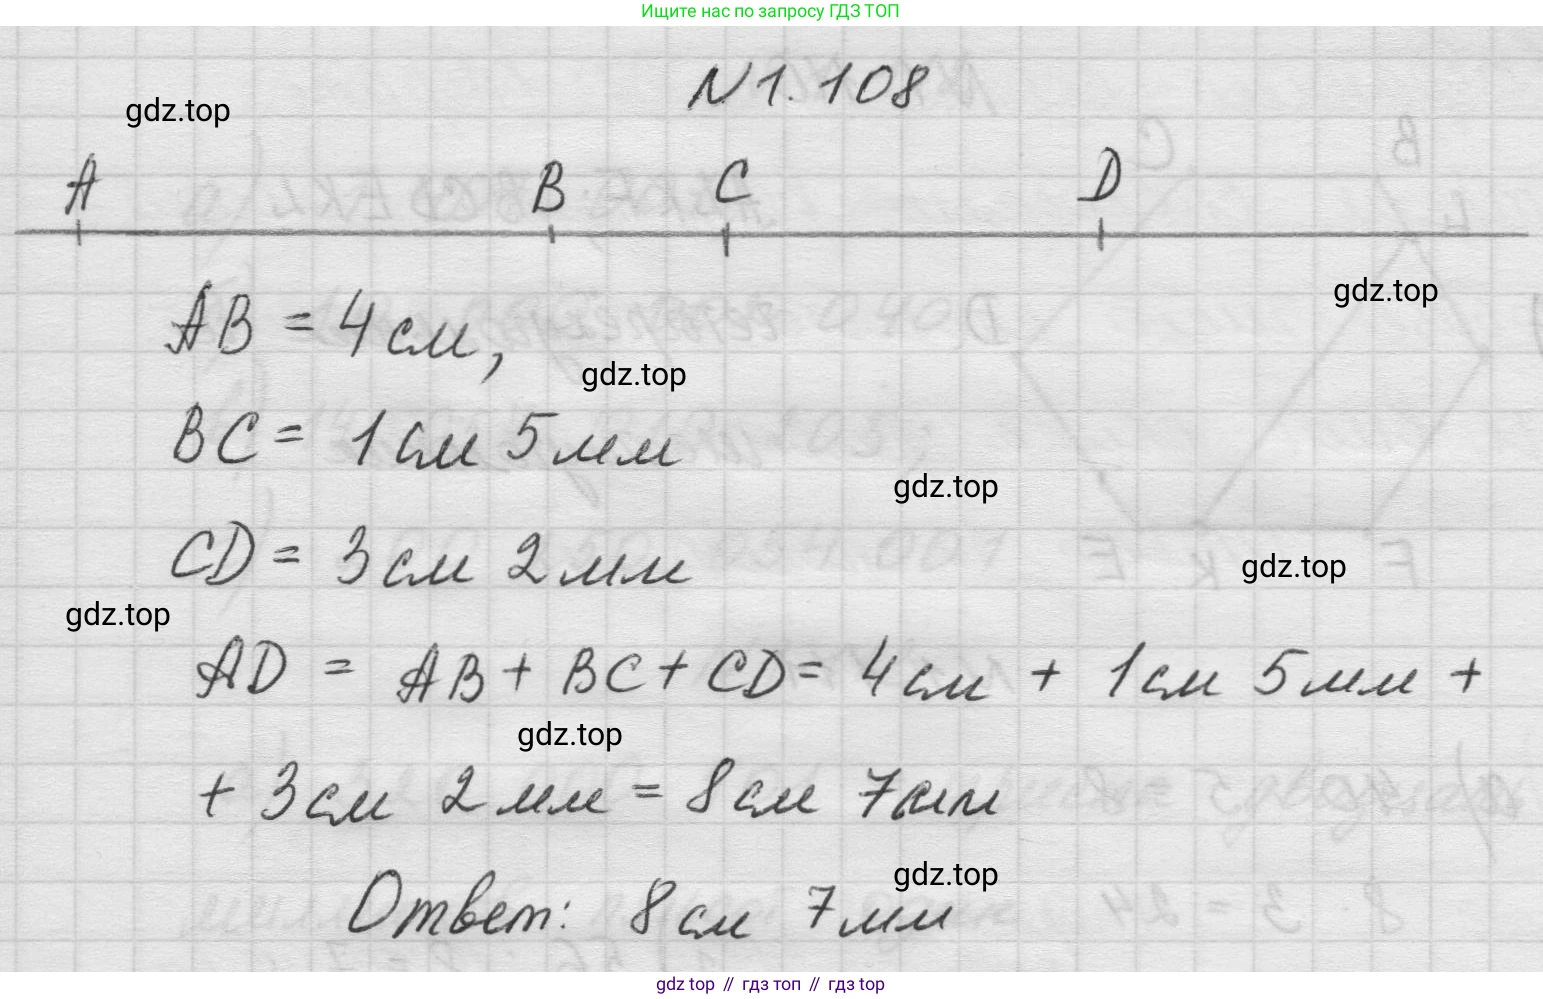 Ищите нас по запросу ГДЗ ТОП
N 1.108
gdz.top
A B C D
gdz.top
AB = 4 см,
gdz.top
BC = 1 см 5 мм
gdz.top
CD = 3 см 2 мм
gdz.top
gdz.top
AD = AB + BC + CD = 4 см + 1 см 5 мм +
gdz.top
+ 3 см 2 мм = 8 см 7 мм
gdz.top
Ответ: 8 см 7 мм
gdz top // гдз топ // гдз top